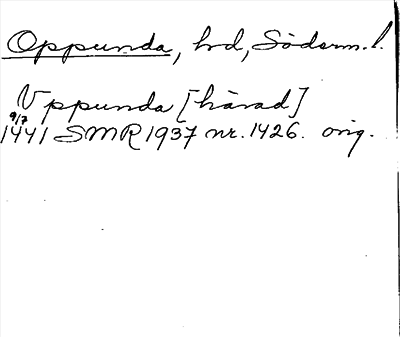 Oppunda, hd, Söderm. l.
Vppunda [härad]
9/7
1441 SMR 1937 nr. 1426. orig.